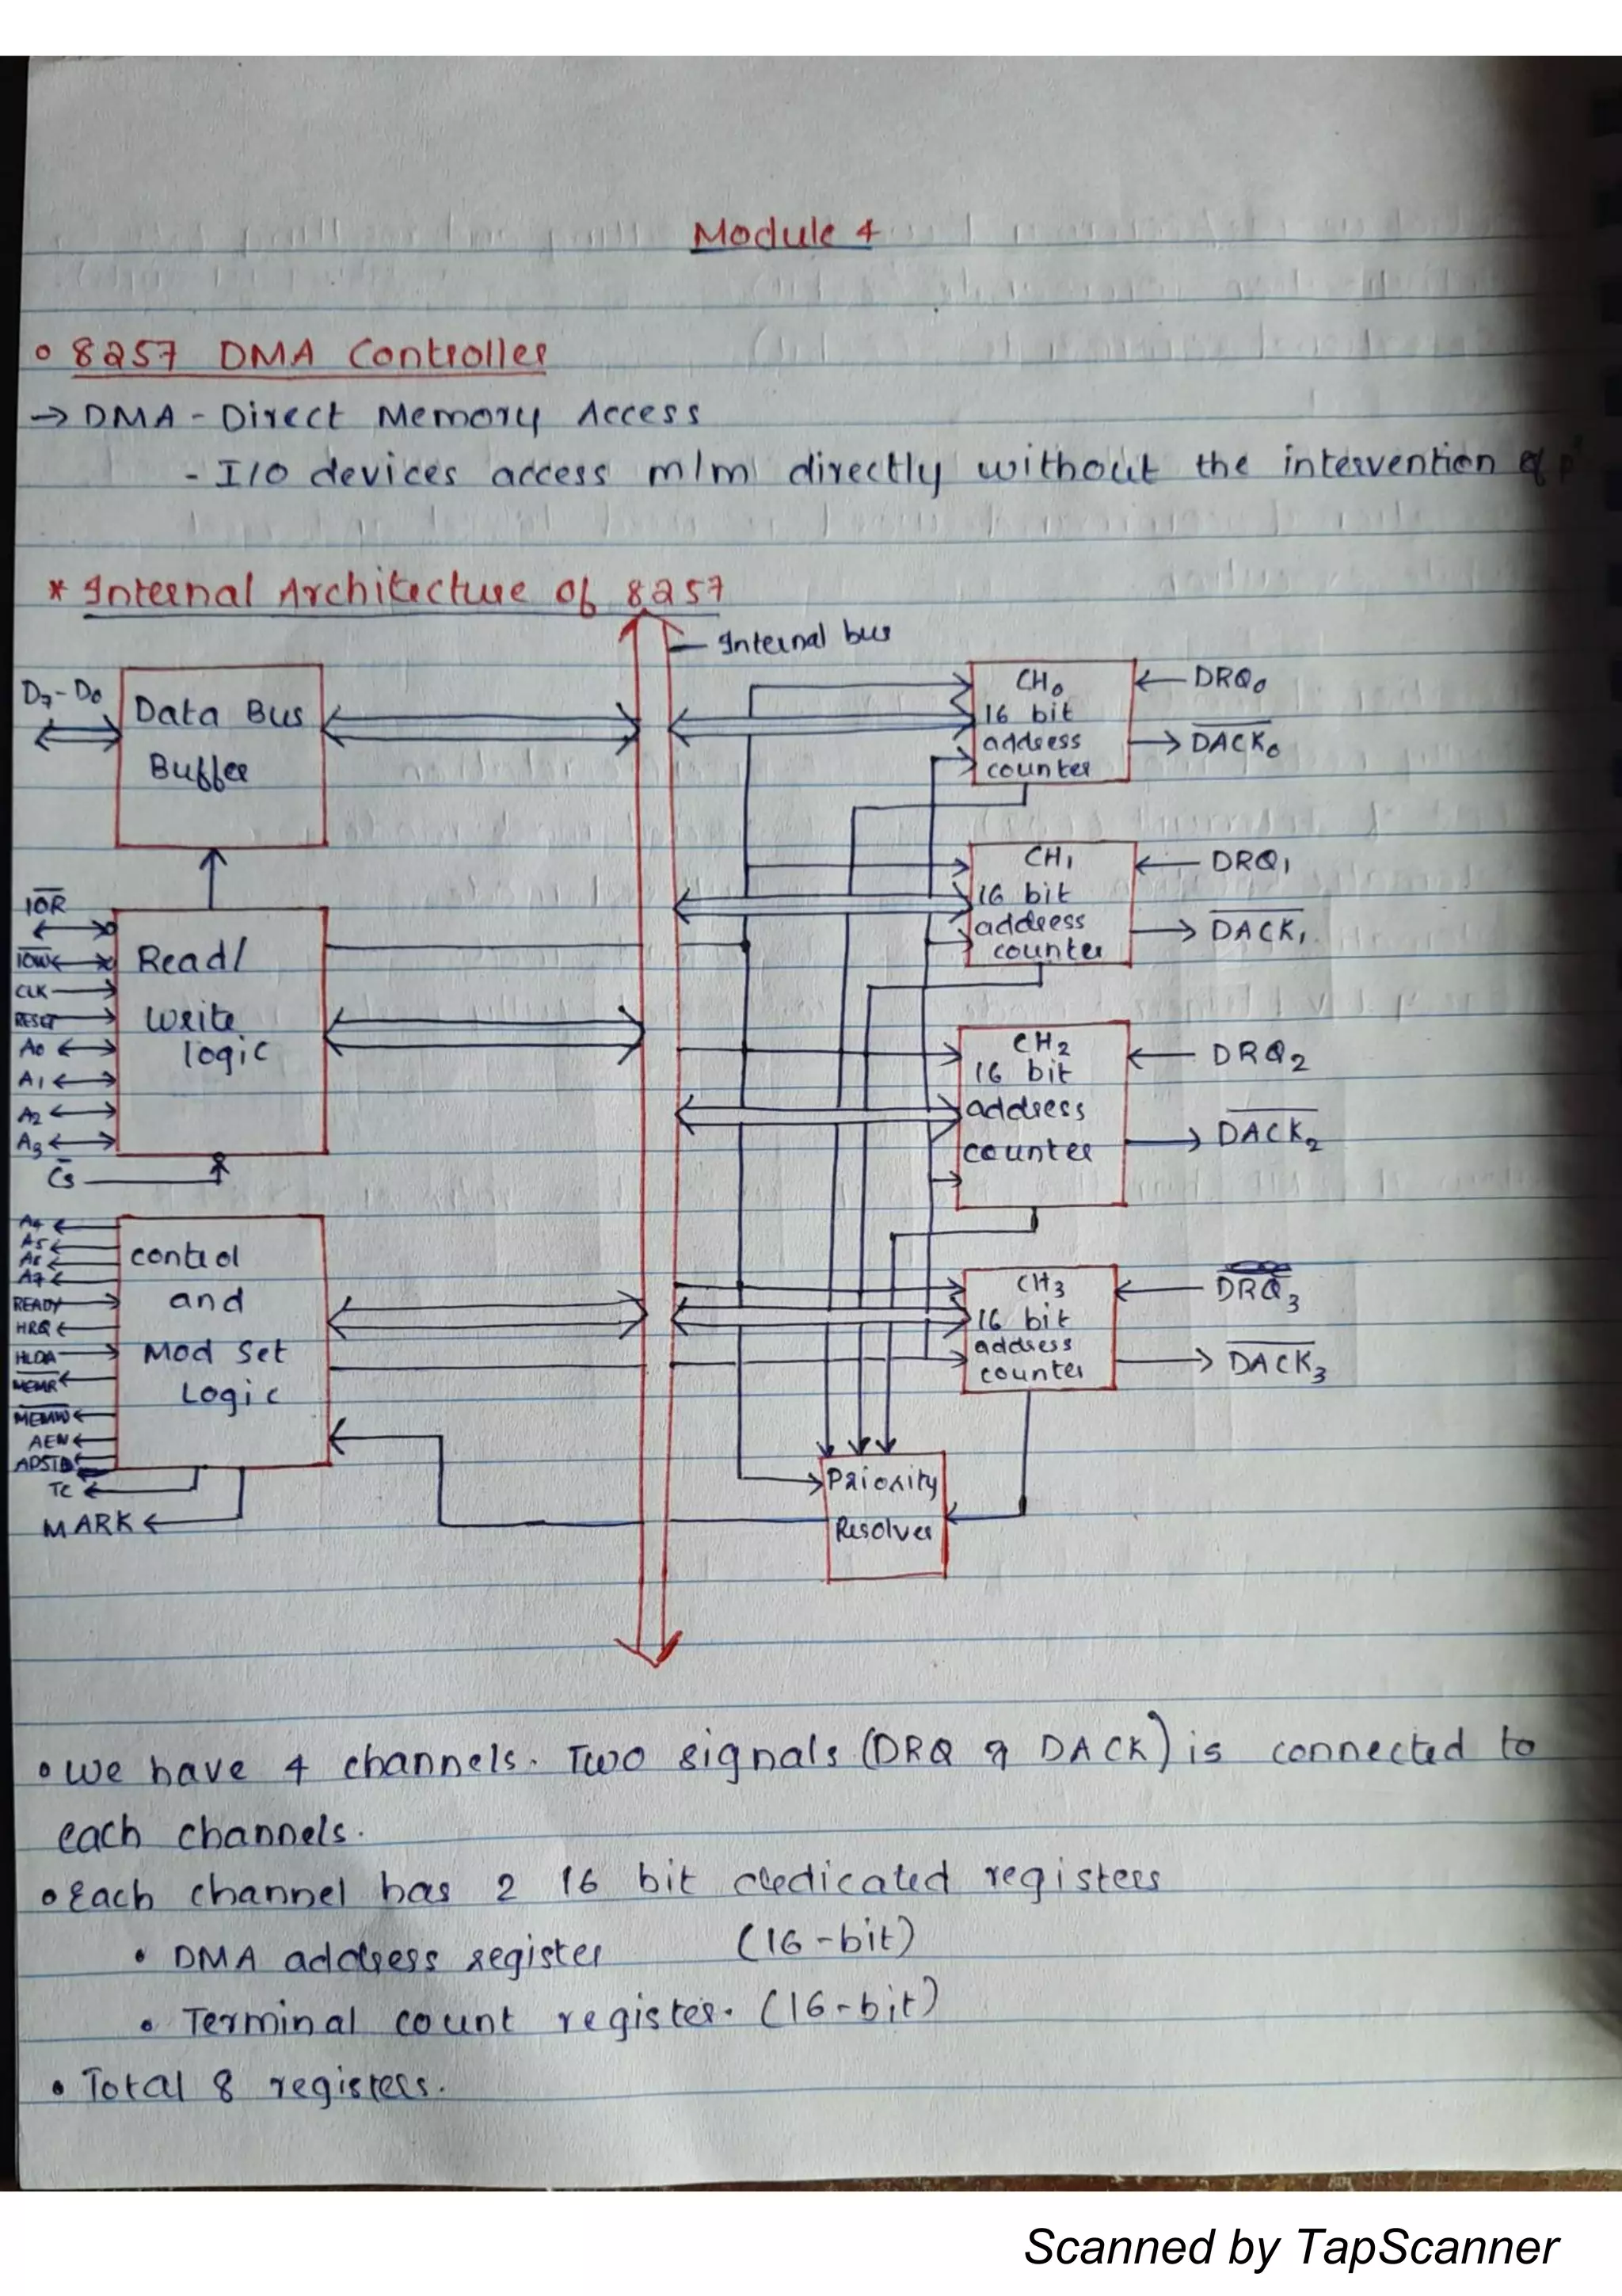 Module 4
8257 DMA Controller
→ DMA - Direct Memory Access
- I/O devices access m/m directly without the intervention of
* Internal Architecture of 8257
Internal bus
D7-D0
Data Bus
Buffer
I̅O̅R̅
I̅O̅W̅
CLK
RESET
A0
A1
A2
A3
C̅S̅
Read/
Write
logic
A4
A5
A6
A7
READY
HRQ
HLDA
M̅E̅M̅R̅
M̅E̅M̅W̅
AEN
ADSTB
TC
MARK
control
and
Mod Set
Logic
CH0
16 bit
address
counter
DRQ0
D̅A̅C̅K̅0
CH1
16 bit
address
counter
DRQ1
D̅A̅C̅K̅1
CH2
16 bit
address
counter
DRQ2
D̅A̅C̅K̅2
CH3
16 bit
address
counter
DRQ3
D̅A̅C̅K̅3
Priority
Resolver
• We have 4 channels. Two signals (DRQ & DACK) is connected to
each channels.
• Each channel has 2 16 bit dedicated registers
• DMA address register (16-bit)
• Terminal count register. (16-bit)
• Total 8 registers.
Scanned by TapScanner